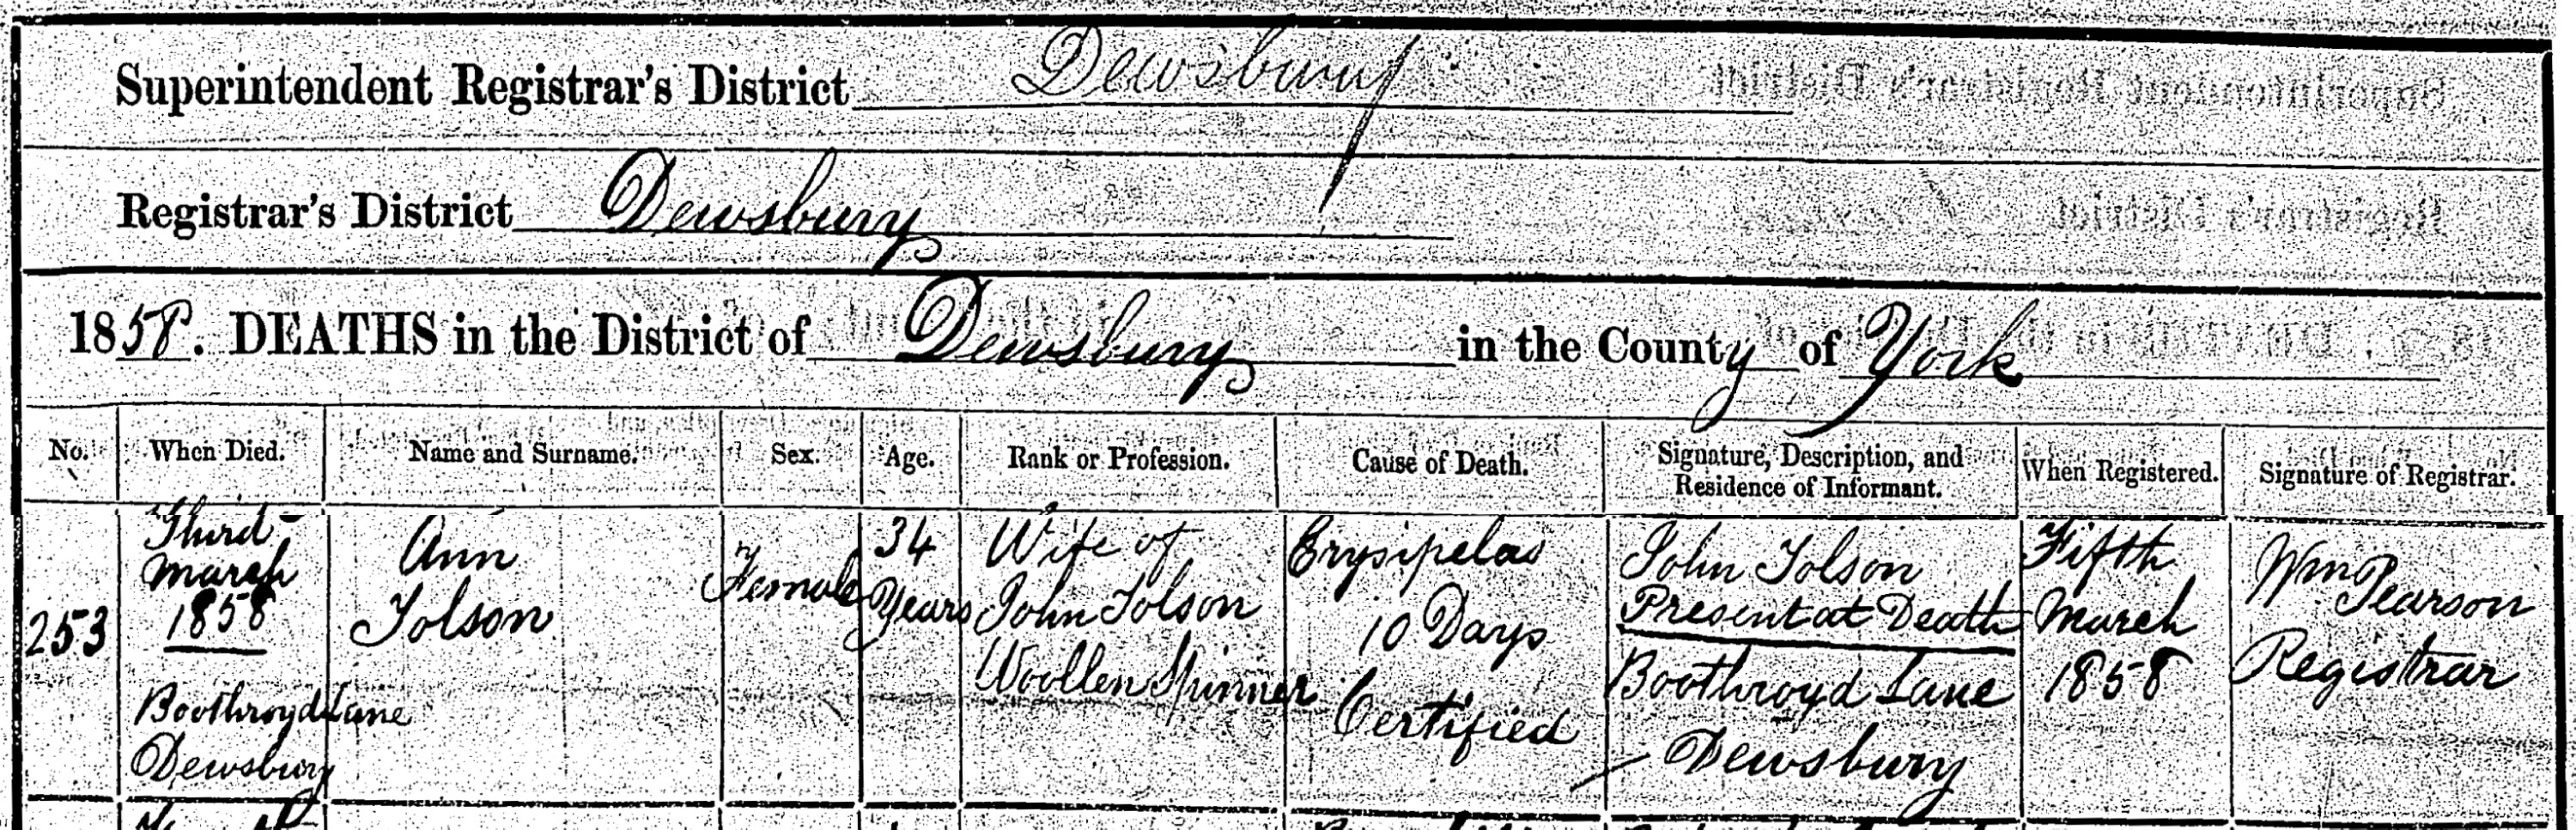 Superintendent Registrar's District Dewsbury
Registrar's District Dewsbury
1858. DEATHS in the District of Dewsbury in the County of York
No. When Died. Name and Surname. Sex. Age. Rank or Profession. Cause of Death. Signature, Description, and Residence of Informant. When Registered. Signature of Registrar.
253
Third
March
1858
Boothroyd Lane
Dewsbury
Ann
Tolson
Female
34
Years
Wife of
John Tolson
Woollen Spinner
Erysipelas
10 Days
Certified
John Tolson
Present at Death
Boothroyd Lane
Dewsbury
Fifth
March
1858
Wm Pearson
Registrar